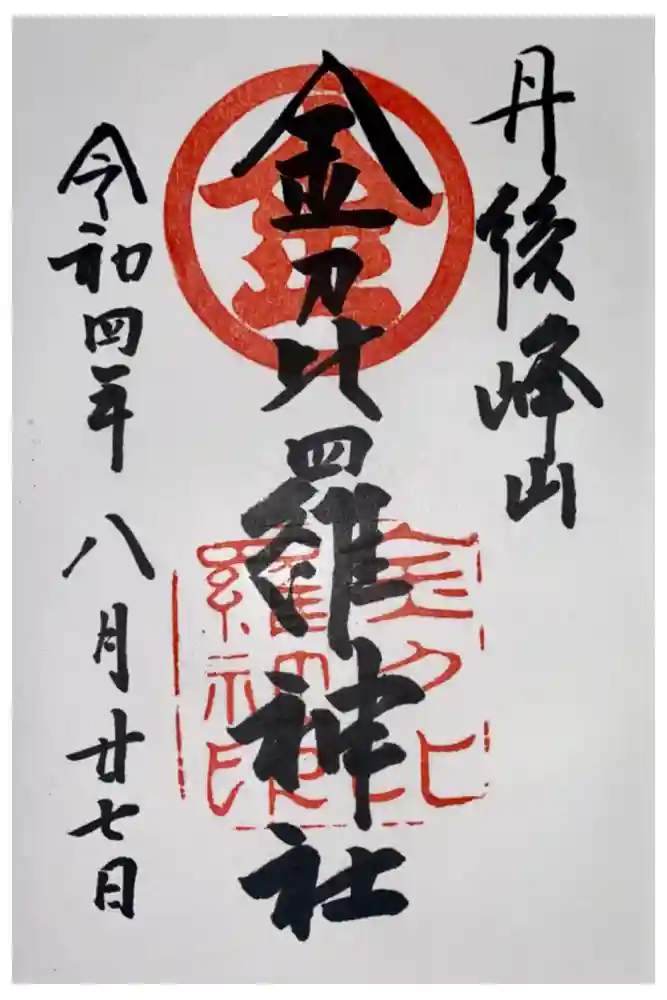 丹後峰山
金刀比羅神社
令和四年 八月廿七日
金
金刀比
羅神印